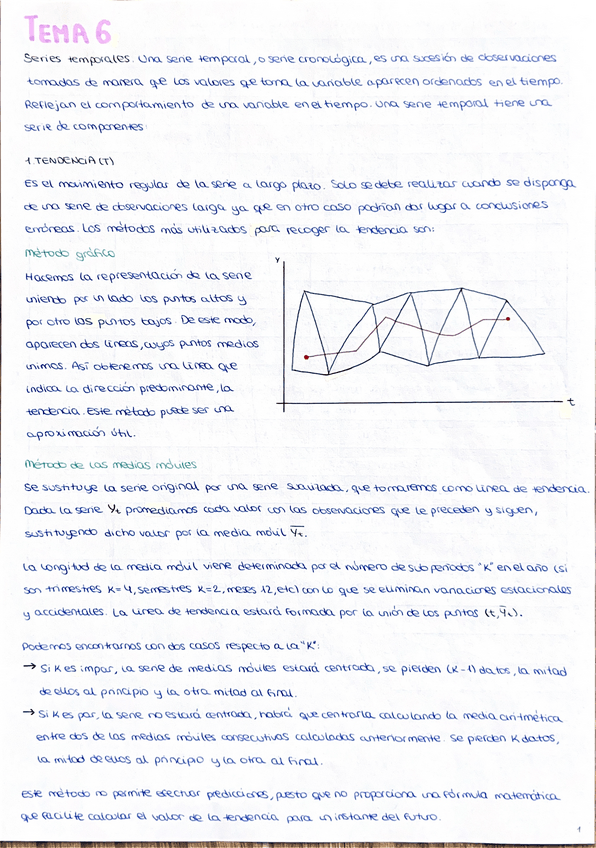 TEMA 6
Series temporales. Una serie temporal, o serie cronológica, es una sucesión de observaciones
tomadas de manera que los valores que toma la variable aparecen ordenados en el tiempo.
Reflejan el comportamiento de una variable en el tiempo. Una serie temporal tiene una
serie de componentes:
1. TENDENCIA (T)
Es el movimiento regular de la serie a largo plazo. Solo se debe realizar cuando se disponga
de una serie de observaciones larga ya que en otro caso podrían dar lugar a conclusiones
erróneas. Los métodos más utilizados para recoger la tendencia son:
Método gráfico
Hacemos la representación de la serie
uniendo por un lado los puntos altos y
por otro los puntos bajos. De este modo,
aparecen dos líneas, cuyos puntos medios
unimos. Así obtenemos una línea que
indica la dirección predominante, la
tendencia. Este método puede ser una
aproximación útil.
Y
t
Método de las medias móviles
Se sustituye la serie original por una serie suavizada, que tomaremos como línea de tendencia.
Dada la serie Yt promediamos cada valor con las observaciones que le preceden y siguen,
sustituyendo dicho valor por la media móvil Y̅t.
La longitud de la media móvil viene determinada por el número de subperíodos "K" en el año (si
son trimestres K=4, semestres K=2, meses 12, etc) con lo que se eliminan variaciones estacionales
y accidentales. La línea de tendencia estará formada por la unión de los puntos (t, y̅t).
Podemos encontrarnos con dos casos respecto a la "K":
→ Si K es impar, la serie de medias móviles estará centrada, se pierden (K-1) datos, la mitad
de ellos al principio y la otra mitad al final.
→ Si K es par, la serie no estará centrada, habrá que centrarla calculando la media aritmética
entre dos de las medias móviles consecutivas calculadas anteriormente. Se pierden K datos,
la mitad de ellos al principio y la otra al final.
Este método no permite efectuar predicciones, puesto que no proporciona una fórmula matemática
que facilite calcular el valor de la tendencia para un instante del futuro.
1